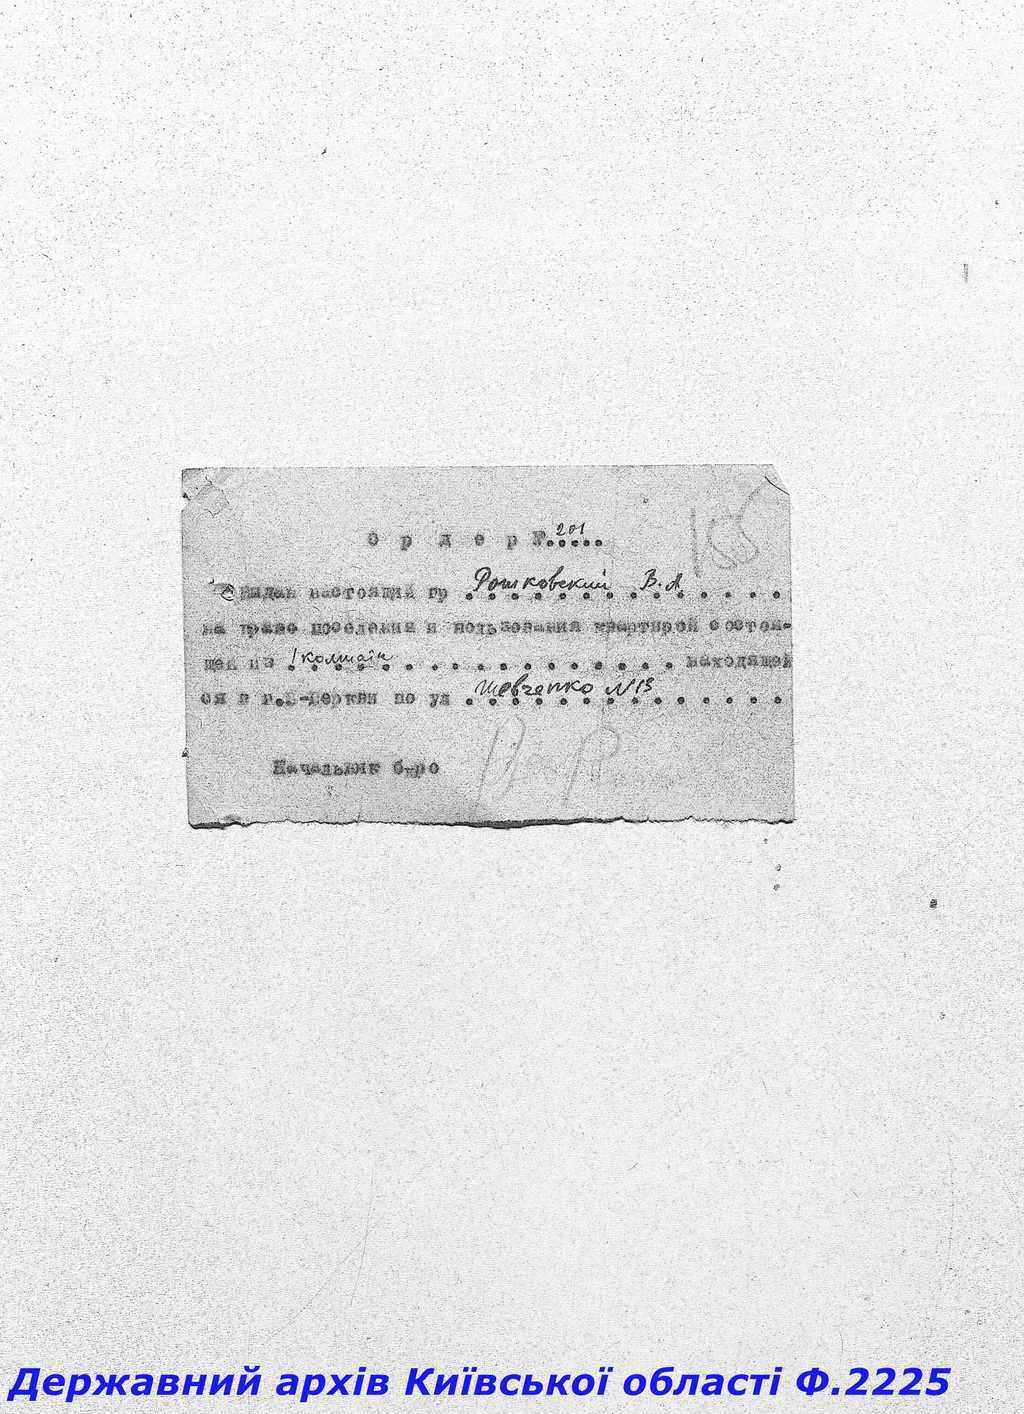 155
Ордер № 201
Выдан настоящий гр Рошковский В. А
на право поселения и пользования квартирой состоя-
щей из 1 комнати находящей
ся в г.Б-Церкви по ул Шевченко №13
Начальник бюро
Державний архів Київської області Ф.2225